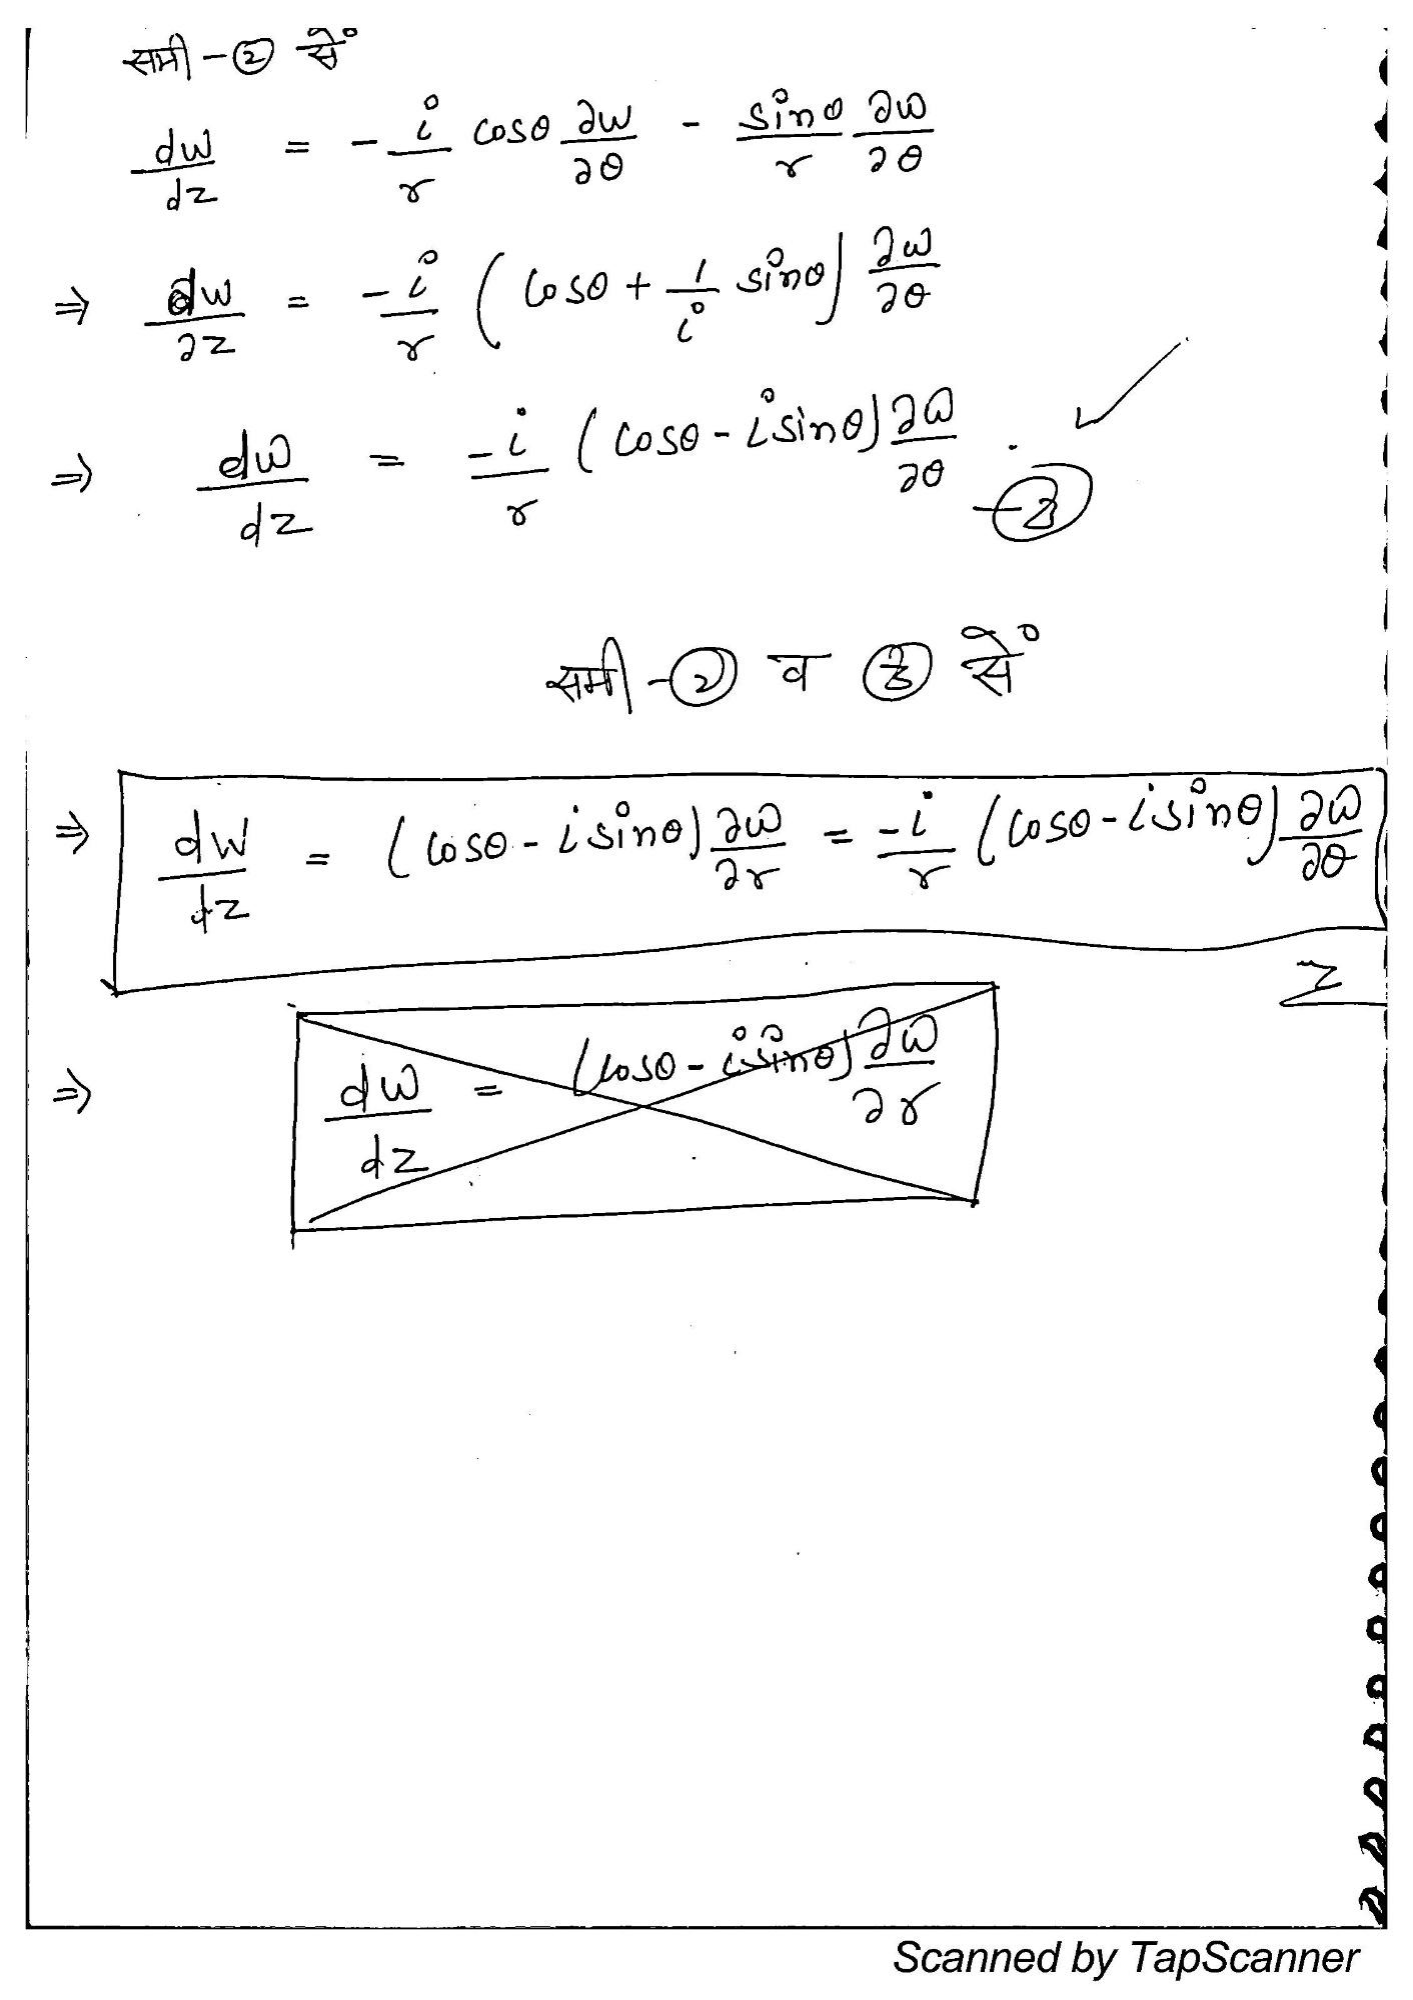 समी - ② से
dw/dz = - i/r cosθ ∂w/∂θ - sinθ/r ∂w/∂θ
⇒ dw/∂z = -i/r ( cosθ + 1/i sinθ ) ∂w/∂θ
⇒ dw/dz = -i/r ( cosθ - i sinθ ) ∂w/∂θ . - ③
समी - ② व ③ से
⇒ dw/dz = ( cosθ - i sinθ ) ∂w/∂r = -i/r ( cosθ - i sinθ ) ∂w/∂θ
⇒ dw/dz = ( cosθ - i sinθ ) ∂w/∂r
Scanned by TapScanner